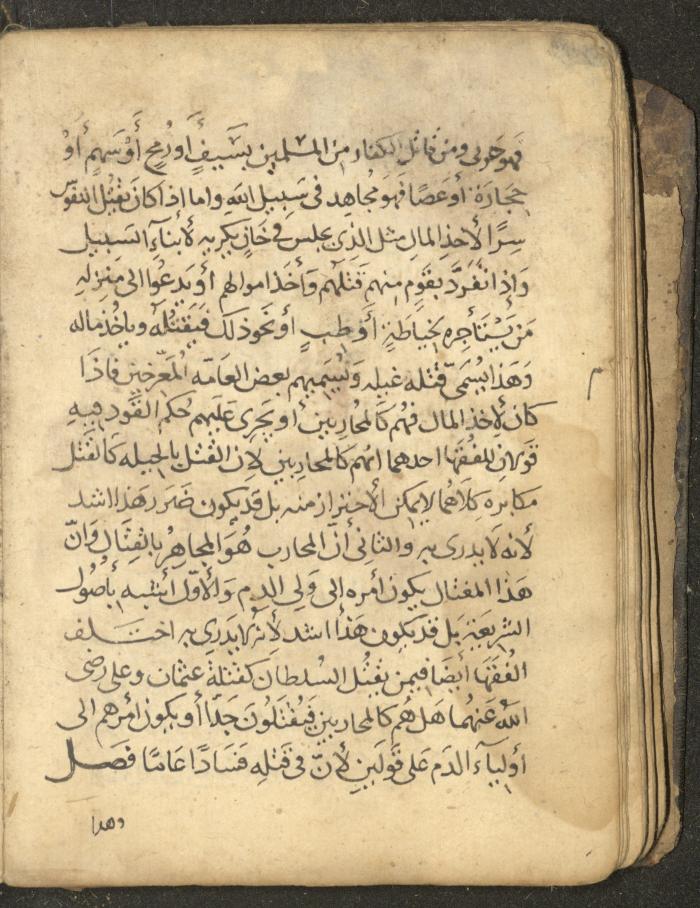 فهو حربى ومن قاتل الكفار من المسلمين بسَيفٍ أو رُمحٍ أَوْ سَهمٍ أَوْ
حِجَارَة أو عَصًا فَهوَ مُجَاهِد فى سَبيل الله واما اذا كانَ يقْتُل النفوس
سِرًا لأخذِ المالِ مثل الذى يجلس فى خَانٍ يكريه لأبنآء السَبيل
وَاذا انفَردَ بقَومٍ منهم قَتلَهُم وَأخَذ اموالهم أو يَدعُوا الى مَنزِلِهِ
مَن يَسْتَأجره لخيَاطةٍ أو طبٍ أو نحو ذلك فيَقتُلهُ وياخُذ ماله
وَهَذا يُسَمىَّ قتْله غيله وَيُسَميهم بعض العَامّه المُعَرّجين فاذَا
كان لأخذ المال فهُم كالمحاربين أو يَجرى عَليهم حُكم القَود فيهِ
قولان للفُقَهَا احدهما انهم كالمحاربين لان القَتْل بالحِيله كالقَتل
مكابره كِلاهُما لايمكن الأحتراز منه بل قد يكون ضَرر هَذا اشد
لأنه لَا يدرى به والثانى أنّ المحارب هُوَ المجاهِرُ بالقِتَالِ وَانّ
هَذا المغتال يكون أمره الى وَلى الدم وَالأوّل أشبه بأصُول
الشريعَةِ بَل قد يكون هَذا اشد لأنهُ لا يَدرى به اختلف
الفُقَهَا أيضًا فيمن يقتُل السُلطان كقتلة عثمان وعلى رضى
الله عَنهُما هَل هُم كالمحاربين فيُقتَلُونَ حدّا أو يكون امرهم الى
أوليآء الدَم عَلى قَولَين لأنّ فى قَتلِه فسَادًا عَامّا فصَل
وهذا